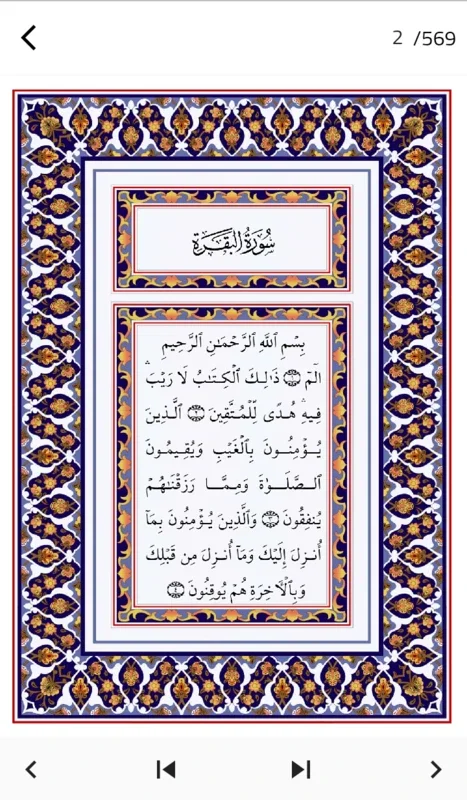 2 /569
سُورَةُ البَقَرَةِ
بِسْمِ ٱللَّهِ ٱلرَّحْمَـٰنِ ٱلرَّحِيمِ
الٓمٓ ۝١ ذَٰلِكَ ٱلْكِتَـٰبُ لَا رَيْبَ ۛ
فِيهِ ۛ هُدًى لِّلْمُتَّقِينَ ۝٢ ٱلَّذِينَ
يُؤْمِنُونَ بِٱلْغَيْبِ وَيُقِيمُونَ
ٱلصَّلَوٰةَ وَمِمَّا رَزَقْنَـٰهُمْ
يُنفِقُونَ ۝٣ وَٱلَّذِينَ يُؤْمِنُونَ بِمَآ
أُنزِلَ إِلَيْكَ وَمَآ أُنزِلَ مِن قَبْلِكَ
وَبِٱلْأَخِرَةِ هُمْ يُوقِنُونَ ۝٤